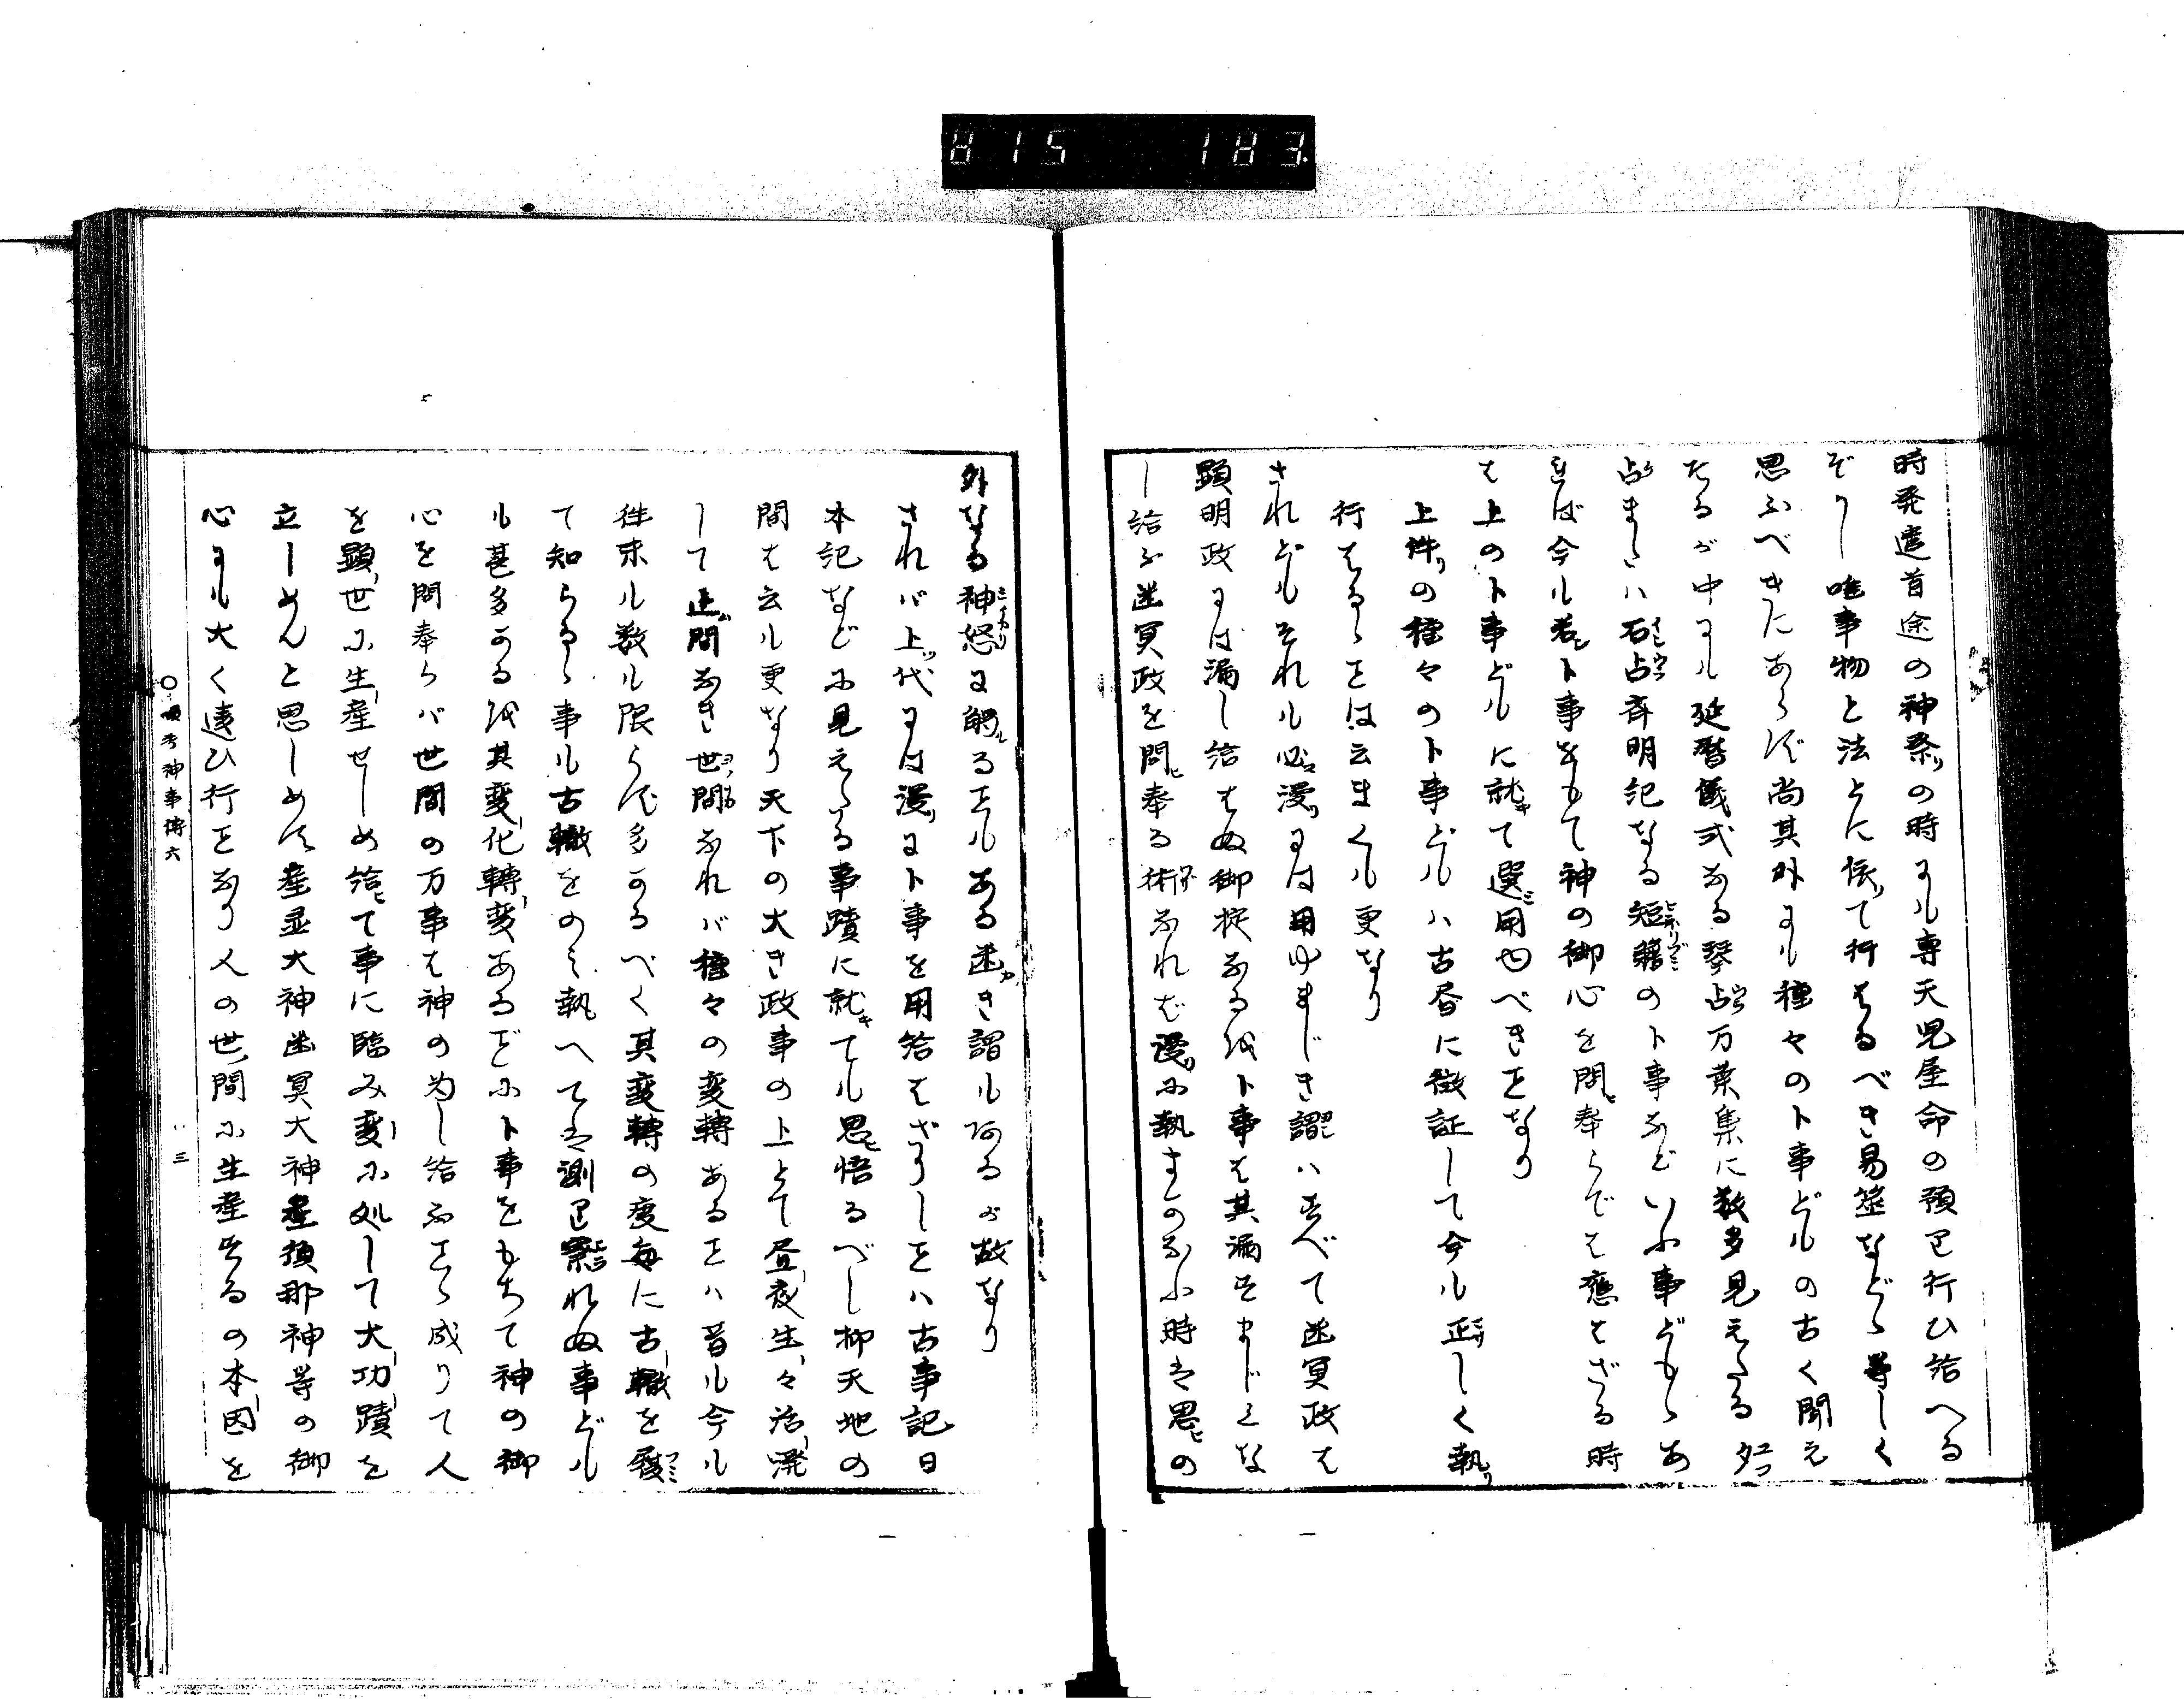 815 183.
時発遣首途の神祭リの時にも専天児屋命の預り行ひ給へる
ぞかし唯事物と法とに依リて行はるべき易筮などゝ等しく
思ふべきにあらず尚其外にも種々の卜事どもの古く聞え
たるが中にも延暦儀式なる琴占万葉集に数多見えたる夕
占または石占斉明記なる短籍の卜事などいふ事どもゝあ
れば今も若シ卜事をもて神の御心を問ヒ奉らでは応はざる時
は上の卜事どもに就キて選ヒ用ゆべきことなり
上件リの種々の卜事どもハ古昔に徴証して今も正しく執リ
行はるゝことは云まくも更なり
されどもそれも必ス漫リには用ゆまじき謂ハすべて幽冥政は
顕明政には漏し給はぬ御掟なるを卜事は其漏すまじくな
し給ふ幽冥政を問ヒ奉る術なれば漫リに執まかなふ時は思ヒの
外なる神怒に触ルることもある畏き謂もあるが故なり
されバ上ツ代には漫リに卜事を用給はざりしことハ古事記日
本記などに見えたる事蹟に就キても思ヒ悟るべし抑天地の
間は云も更なり天下の大き政事の上とて昼夜生々活溌
して止間なき世間なれバ種々の変転あることハ昔も今も
往来も数も限らず多かるべく其変転の度毎に古轍を履
て知らるゝ事も古轍をのミ執へては測り察れぬ事ども
も甚多かるを其変化転変あるごとに卜事をもちて神の御
心を問奉らバ世間の万事は神の為し給ふことゝ成りて人
を顕世に生産せしめ給ヒて事に臨み変に処して大功蹟を
立しめんと思しめす産霊大神幽冥大神産須那神等の御
心にも大く違ひ行ことなり人の世間に生産するの本因を
神事伝六
三